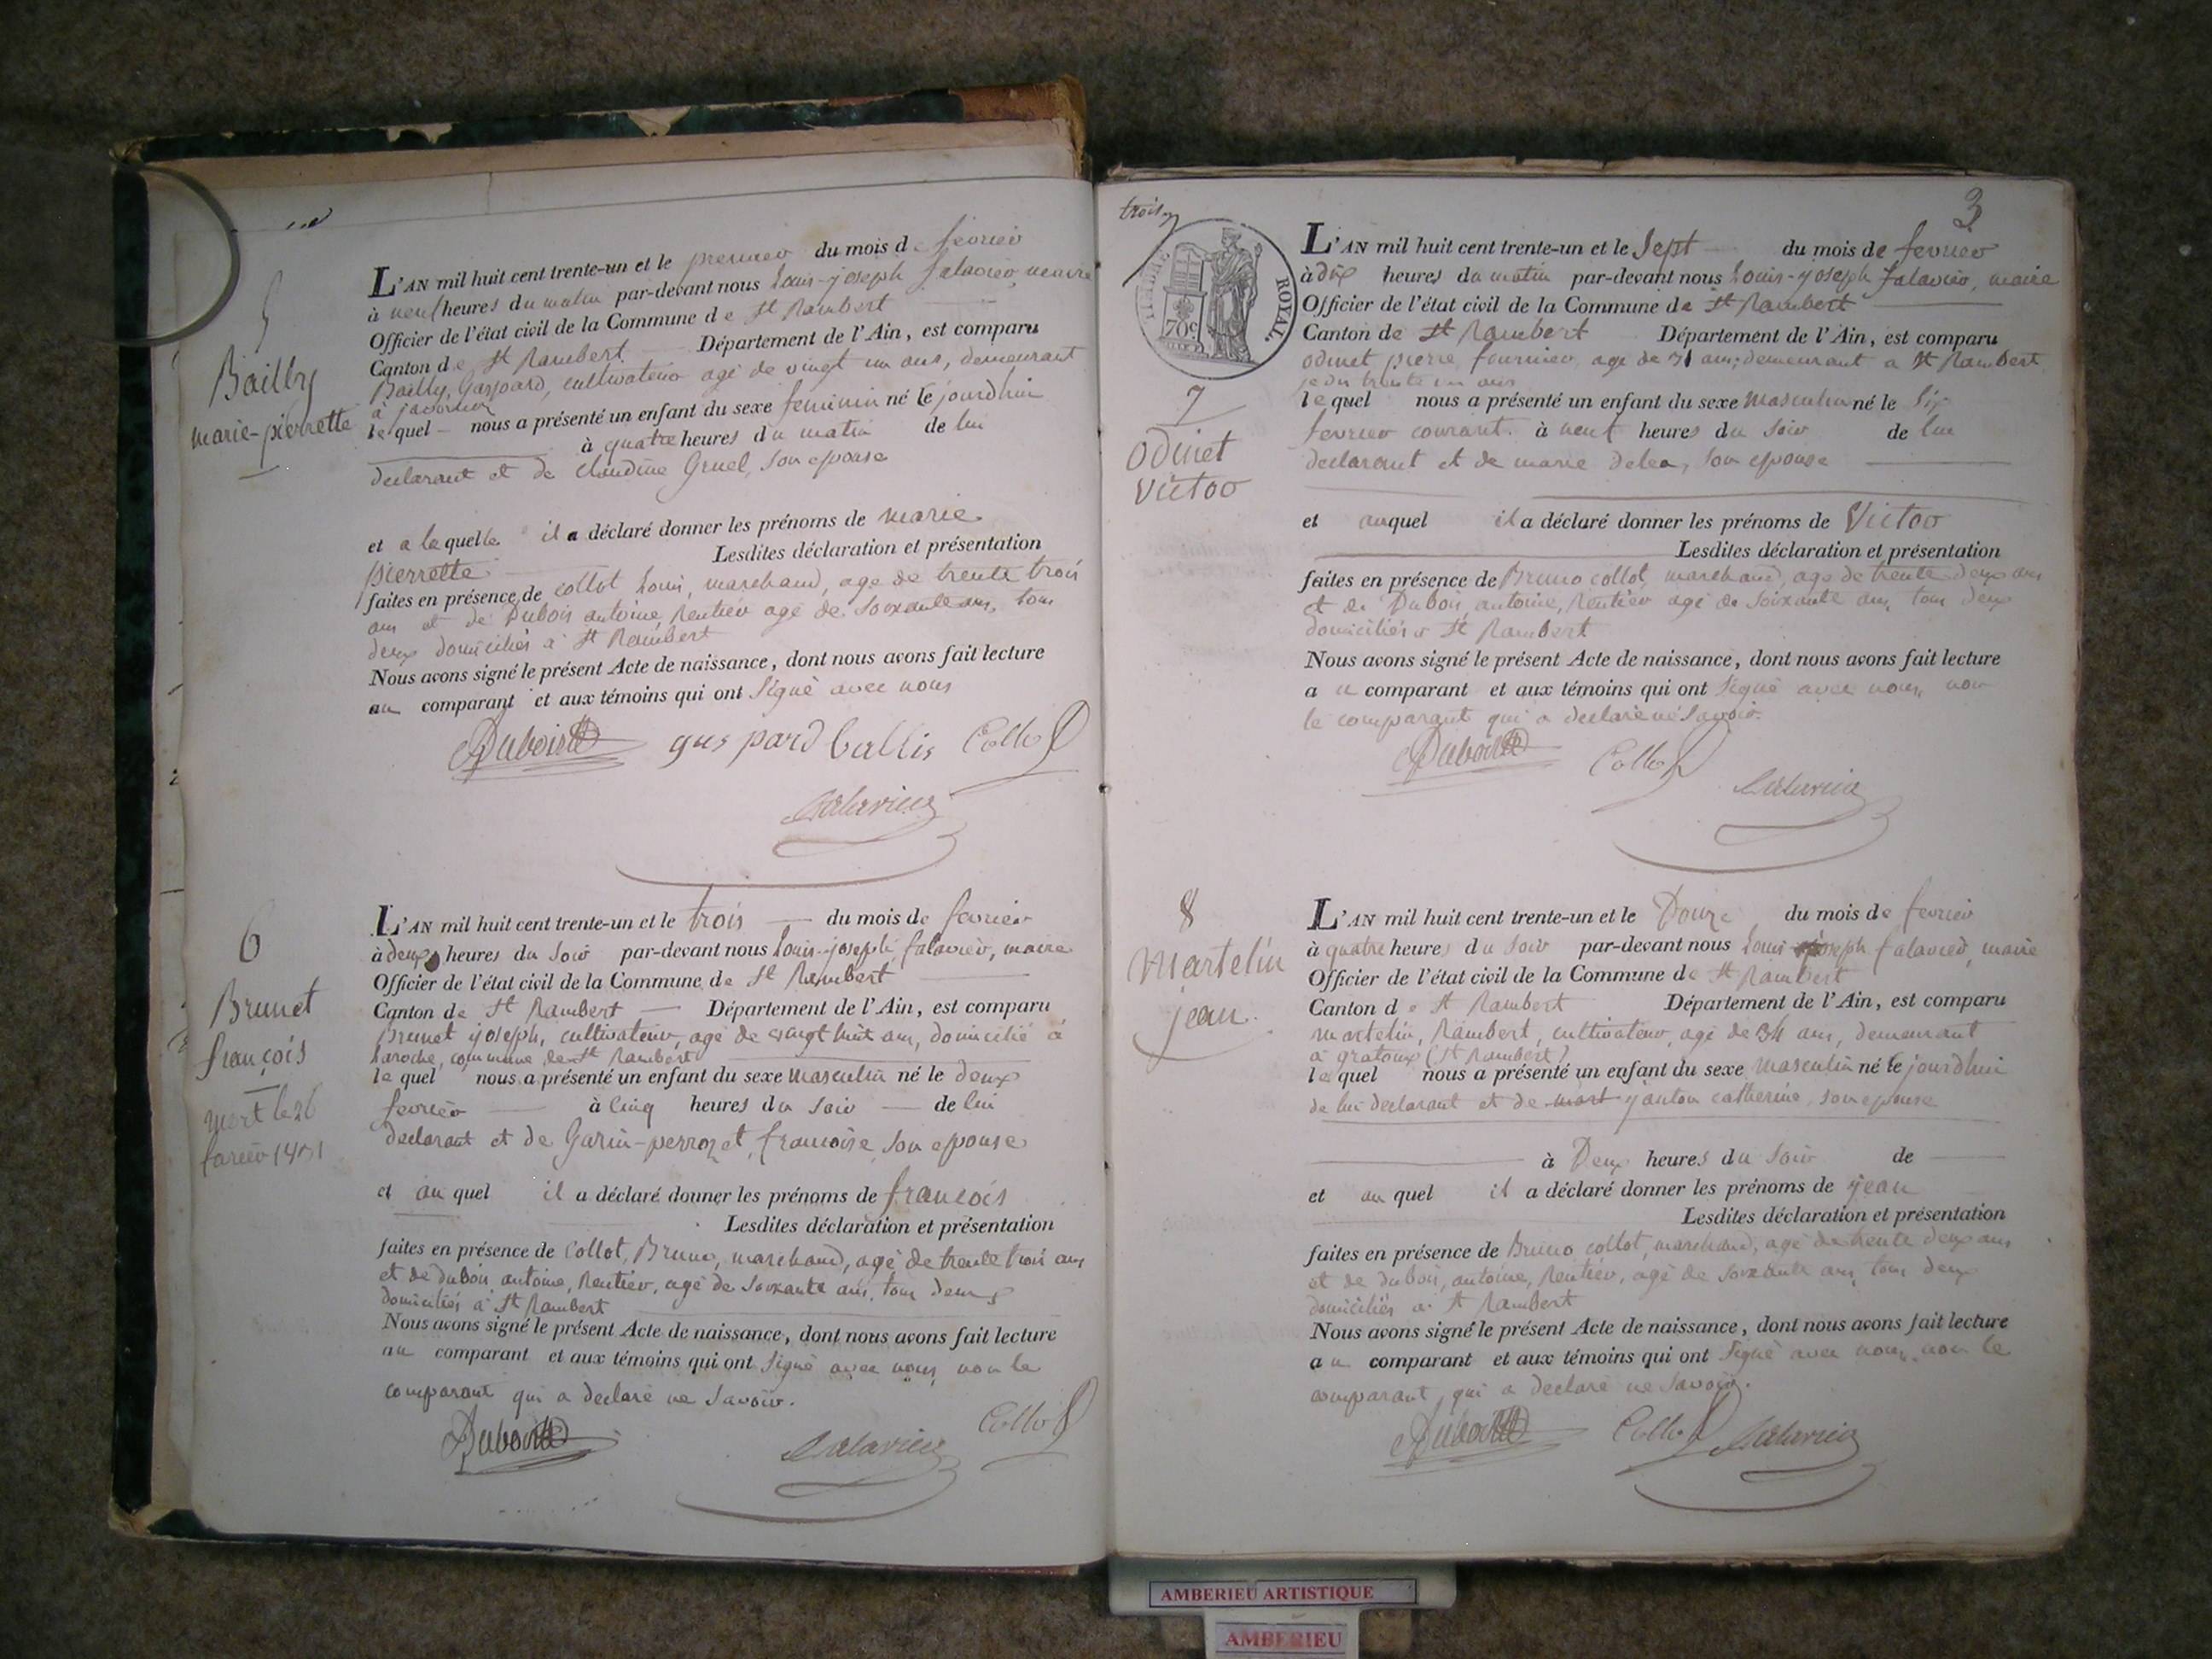 5
Bailly
marie-pierrette
L'AN mil huit cent trente-un et le premier du mois de fevrier
à neuf heures du matin par-devant nous Louis-joseph falavier, maire
Officier de l'état civil de la Commune de St Rambert
Canton de St Rambert Département de l'Ain, est comparu
Bailly, Gaspard, cultivateur agé de vingt un ans, demeurant
à
lequel nous a présenté un enfant du sexe feminin né le jourdhui
à quatre heures du matin de lui
declarant et de Claudine Gruel, son epouse
et a laquelle il a déclaré donner les prénoms de marie
pierrette Lesdites déclaration et présentation
faites en présence de collot Louis, marchand, age de trente trois
ans et de Dubois antoine, Rentier agé de soixante ans, tous
deux domiciliés à St Rambert
Nous avons signé le présent Acte de naissance, dont nous avons fait lecture
au comparant et aux témoins qui ont signé avec nous
Dubois gaspard ballis Collot
falavier
6
Brunet
françois
mort le 26
L'AN mil huit cent trente-un et le trois du mois de fevrier
à deux heures du soir par-devant nous Louis-joseph falavier, maire
Officier de l'état civil de la Commune de St Rambert
Canton de St Rambert Département de l'Ain, est comparu
Brunet joseph, cultivateur, agé de vingt huit ans, domicilié à
Laroche, commune de St Rambert
lequel nous a présenté un enfant du sexe masculin né le deux
fevrier à cinq heures du soir de lui
declarant et de Gurin-perrozet, françoise son epouse
et auquel il a déclaré donner les prénoms de francois
Lesdites déclaration et présentation
faites en présence de Collot, Bruno, marchand, agé de trente trois ans
et de dubois antoine, Rentier, agé de soixante ans, tous deux
domiciliés à St Rambert
Nous avons signé le présent Acte de naissance, dont nous avons fait lecture
au comparant et aux témoins qui ont signé avec nous, non le
comparant qui a declaré ne savoir.
Dubois falavier Collot
trois
3
ROYAL.
70c
7
odinet
Victor
L'AN mil huit cent trente-un et le Sept du mois de fevrier
à dix heures du matin par-devant nous Louis-joseph falavier, maire
Officier de l'état civil de la Commune de St Rambert
Canton de St Rambert Département de l'Ain, est comparu
odinet pierre fournier, age de 31 ans, demeurant a St Rambert
je dis trente un ans
lequel nous a présenté un enfant du sexe masculin né le Six
fevrier courant à neuf heures du soir de lui
declarant et de marie delea, son epouse
et auquel il a déclaré donner les prénoms de Victor
Lesdites déclaration et présentation
faites en présence de Bruno collot, marchand, age de trente deux ans
et de Dubois, antoine, Rentier agé de soixante ans, tous deux
domiciliés a St Rambert
Nous avons signé le présent Acte de naissance, dont nous avons fait lecture
au comparant et aux témoins qui ont signé avec nous, non
le comparant qui a declaré ne savoir.
Dubois Collot falavier
8
Martelin
jean.
L'AN mil huit cent trente-un et le Douze du mois de fevrier
à quatre heures du soir par-devant nous Louis joseph falavier, maire
Officier de l'état civil de la Commune de St Rambert
Canton de St Rambert Département de l'Ain, est comparu
martelin, Rambert, cultivateur, agé de 34 ans, demeurant
à gratoux (St Rambert)
lequel nous a présenté un enfant du sexe masculin né le jourdhui
de lui declarant et de mart janton catherine, son epouse
à Deux heures du soir de
et auquel il a déclaré donner les prénoms de jean
Lesdites déclaration et présentation
faites en présence de Bruno collot, marchand, agé de trente deux ans
et de dubois, antoine, Rentier, agé de soixante ans, tous deux
domiciliés a St Rambert
Nous avons signé le présent Acte de naissance, dont nous avons fait lecture
au comparant et aux témoins qui ont signé avec nous, non le
comparant, qui a declaré ne savoir.
Dubois Collot falavier
AMBERIEU ARTISTIQUE
AMBERIEU